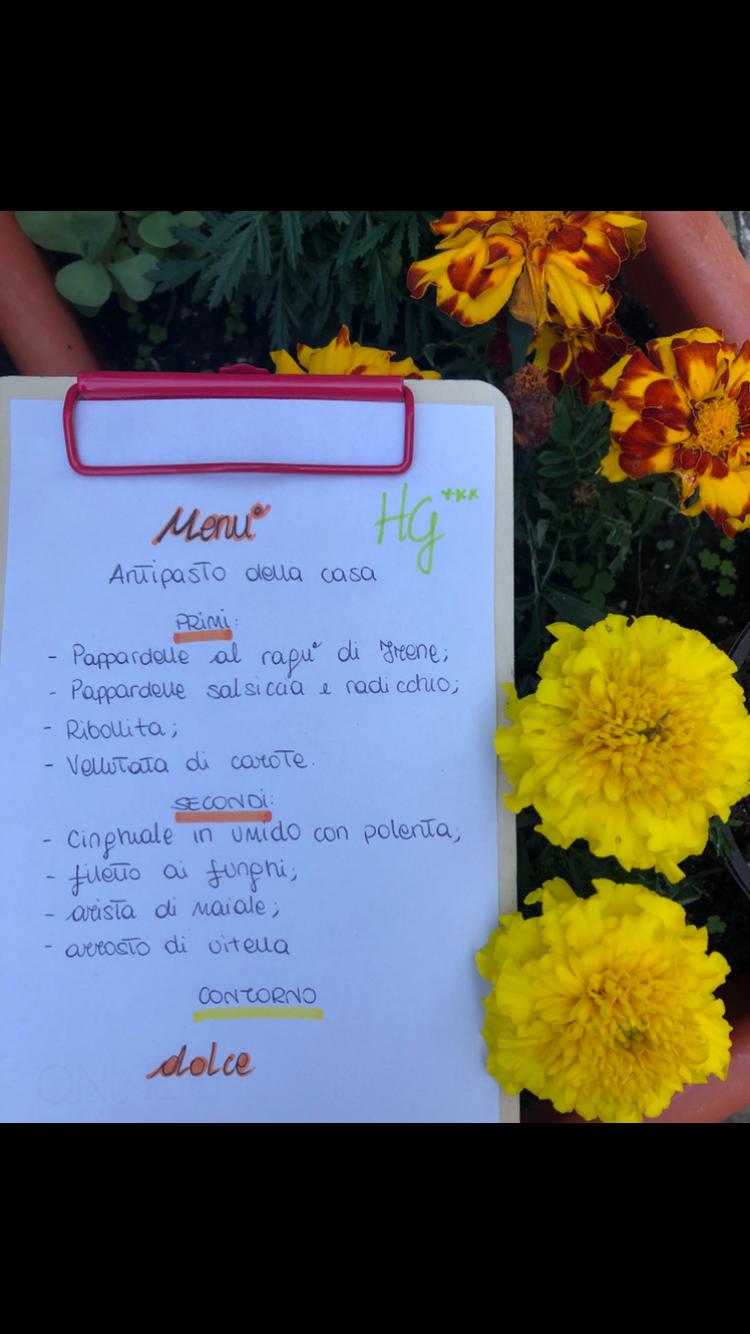 Menù
HG ***
Antipasto della casa
PRIMI:
- Pappardelle al ragù di Irene;
- Pappardelle salsiccia e radicchio;
- Ribollita;
- Vellutata di carote.
SECONDI:
- Cinghiale in umido con polenta;
- filetto ai funghi;
- arista di maiale;
- arrosto di vitella
CONTORNO
dolce